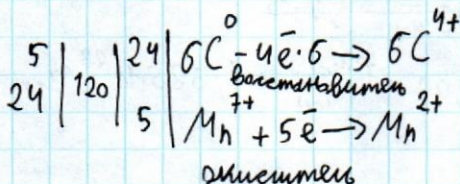 5 | 120 | 24 | 6C⁰ - 4ē·6 → 6C⁴⁺
восстановитель
24 | 5 | Mn⁷⁺ + 5ē → Mn²⁺
окислитель